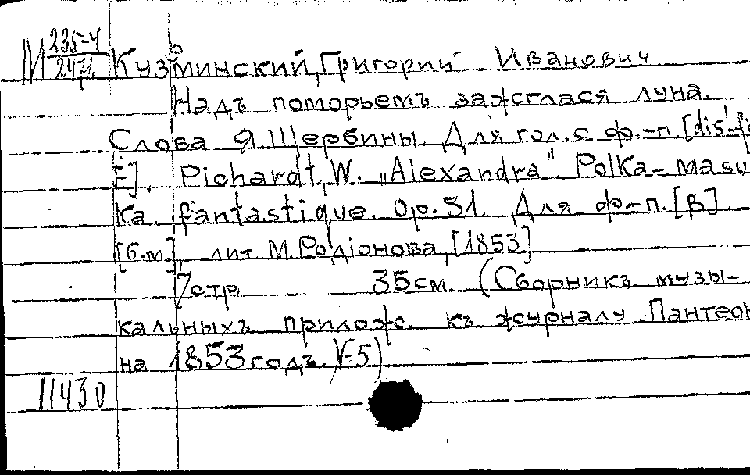 М 235-4/247 Кузьминский, Григорий Иванович
Надъ поморьемъ зажглася луна.
Слова Я. Щербины. Для гол. с ф.-п. [dis'-fi
E]. Pichardt, W. „Alexandra" Polka-masu
ka fantastique. Op. 31. Для ф-п. [B]
[б.м.], лит. М. Родіонова, [1853]
7 стр. 35 см. (Сборникъ музы-
кальныхъ прилож. къ журналу Пантеон
на 1853 годъ. №5)
11430